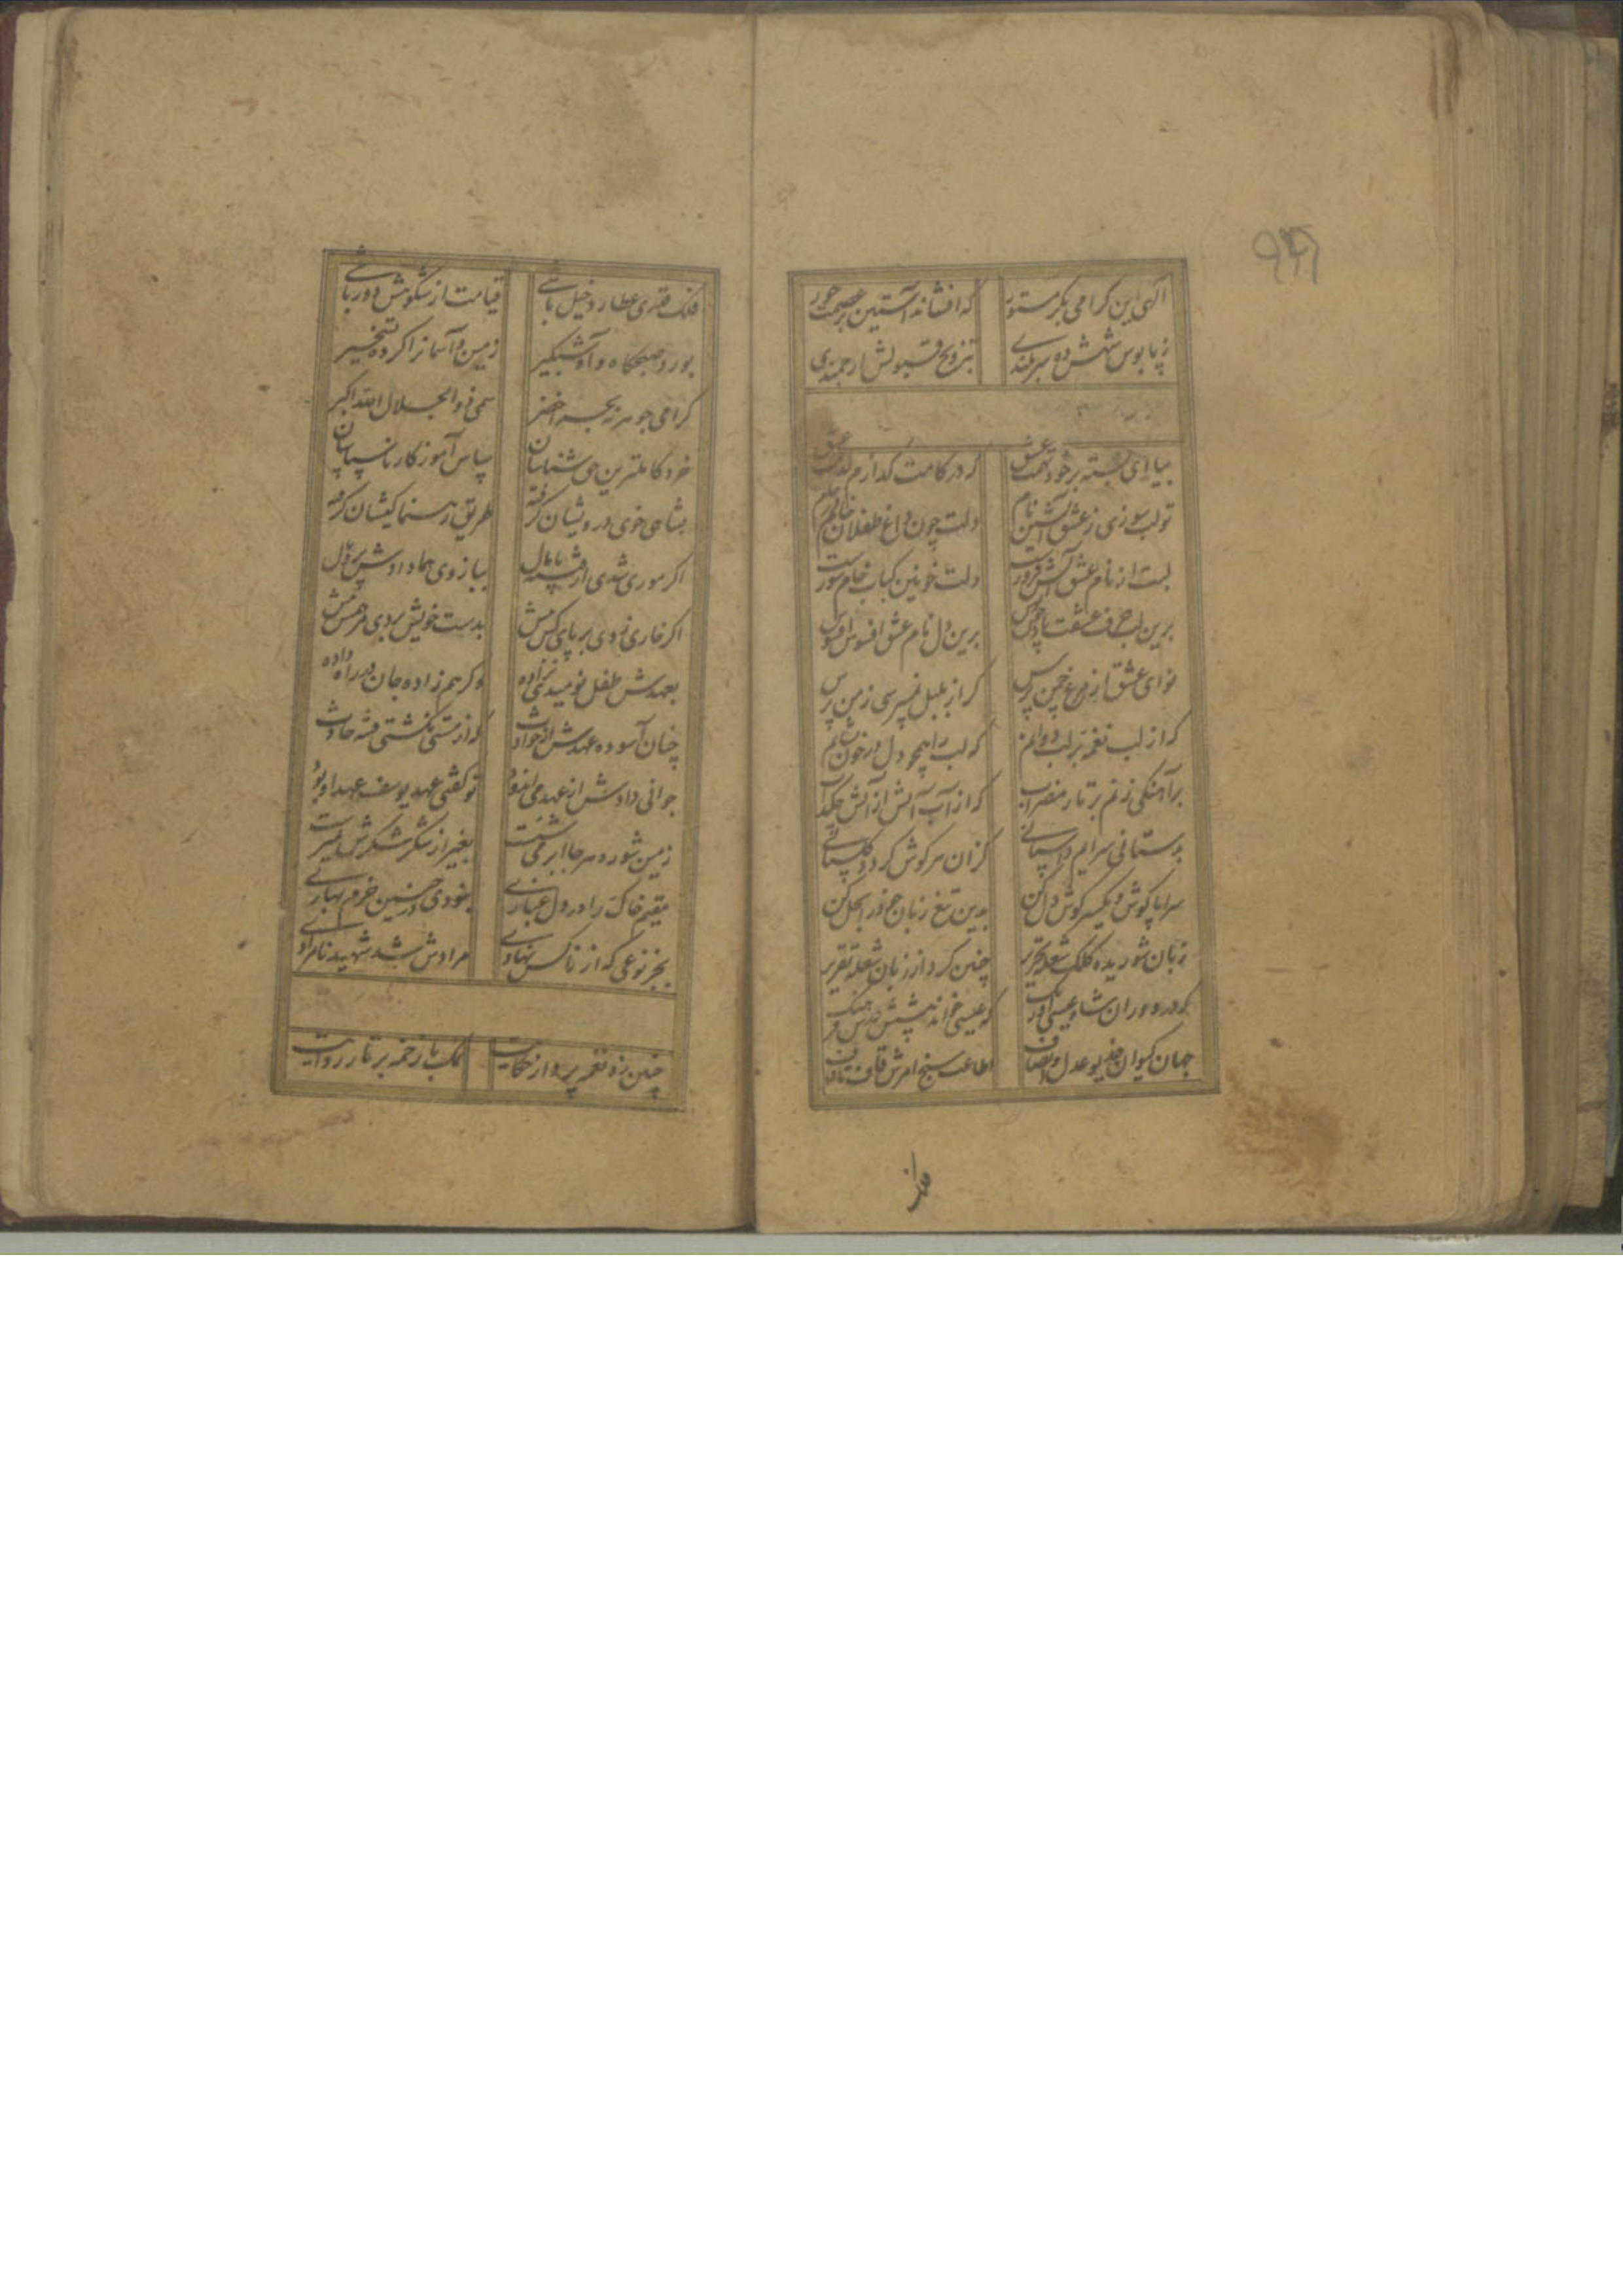 الهی این کرامی بکر مستور که افشاند آستین بر عصمت حور
ز پابوس شهش ده سربلندی بتزویج قبولش ارجمندی
بیا ای بسته بر خود تهمت عشق که در کامت کدازم لذت عشق
تو لب سوزی ز عشق آتشین نام دلت چون داغ طفلان خام
لبت از نام عشق آتش فروز است دلت خونین کباب خام سوز است
برین لب حرف عشقت برین دل نام عشق افسوس افسوس
نوای عشق از مرغ چمن پرس کر از بلبل نمیپرسی ز من پرس
که از لب نغمه بر لب دوانم که لب را همچو دل در خون نشانم
بر آهنکی زنم بر تار مضراب که از آب آتش از آتش چکد آب
بدستانی سرایم داستانی کزان هر کوش کردد کلستانی
سراپا کوش و یکسر کوش دل کن بدین تیغ زبان خود را بحل کن
زبان شوریده کلک شعله تحریر چنین کرد از زبان شعله تقریر
که در دوران شاه عیسی اورنک که عیسی خواند پیشش
جهان کیوان خدیو عدل و انصاف اطاعت سنج امرش قاف تا قاف
فلک
فلک قدری عطارد خیل باشی قیامت از شکوهش دور باشی
بورد صبحکاه و آه شبکیر زمین و آسمانرا کرده تسخیر
کرامی جوهر نه بحر اخضر سمی ذو الجلال الله اکبر
خرد کاملترین حق شناسان سپاس آموز کار ناسپاسان
بشاهی خوی درویشان کرفته طریق رهنما کیشان کرفته
اکر موری شدی از پشه پامال ببازوی هما دادش پر و بال
اکر خاری زدی بر پای کس نیش بدست خویش بردی مرهمش پیش
بعهدش طفل نومیدی نزاده وکر هم زاده جان در راه داده
چنان آسوده عهدش از حوادث که از مستی نکشتی فتنه حادث
جوانی دادش از عهد می افزود تو کفتی عهد یوسف عهد او بود
زمین شوره هر جا ابر می شست بغیر از شکر شکرش نمیرست
مقیم خاک را در دل غباری نبودی در چنین خرم بهاری
بجز نوعی که از ناکس نهادی مرادش شد شهید نامرادی
چنین زد نغمه پرداز حکایت نمک با زخمه بر تار روایت